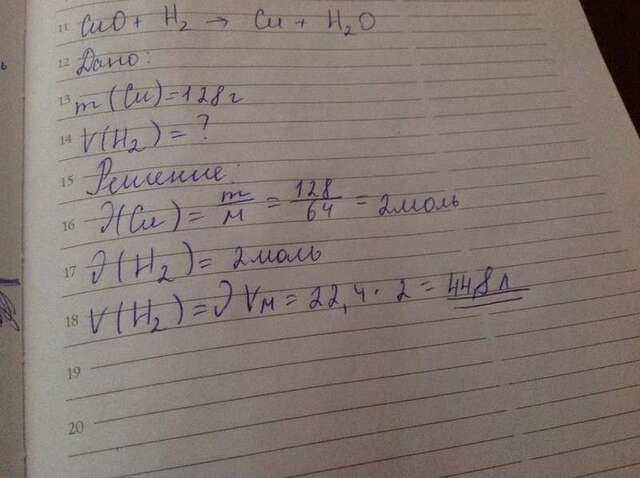 11 CuO + H₂ → Cu + H₂O
12 Дано:
13 m(Cu)=128г
14 V(H₂)=?
15 Решение:
16 ν(Cu) = m/M = 128/64 = 2моль
17 ν(H₂) = 2моль
18 V(H₂) = ν Vм = 22,4 · 2 = 44,8 л
19
20